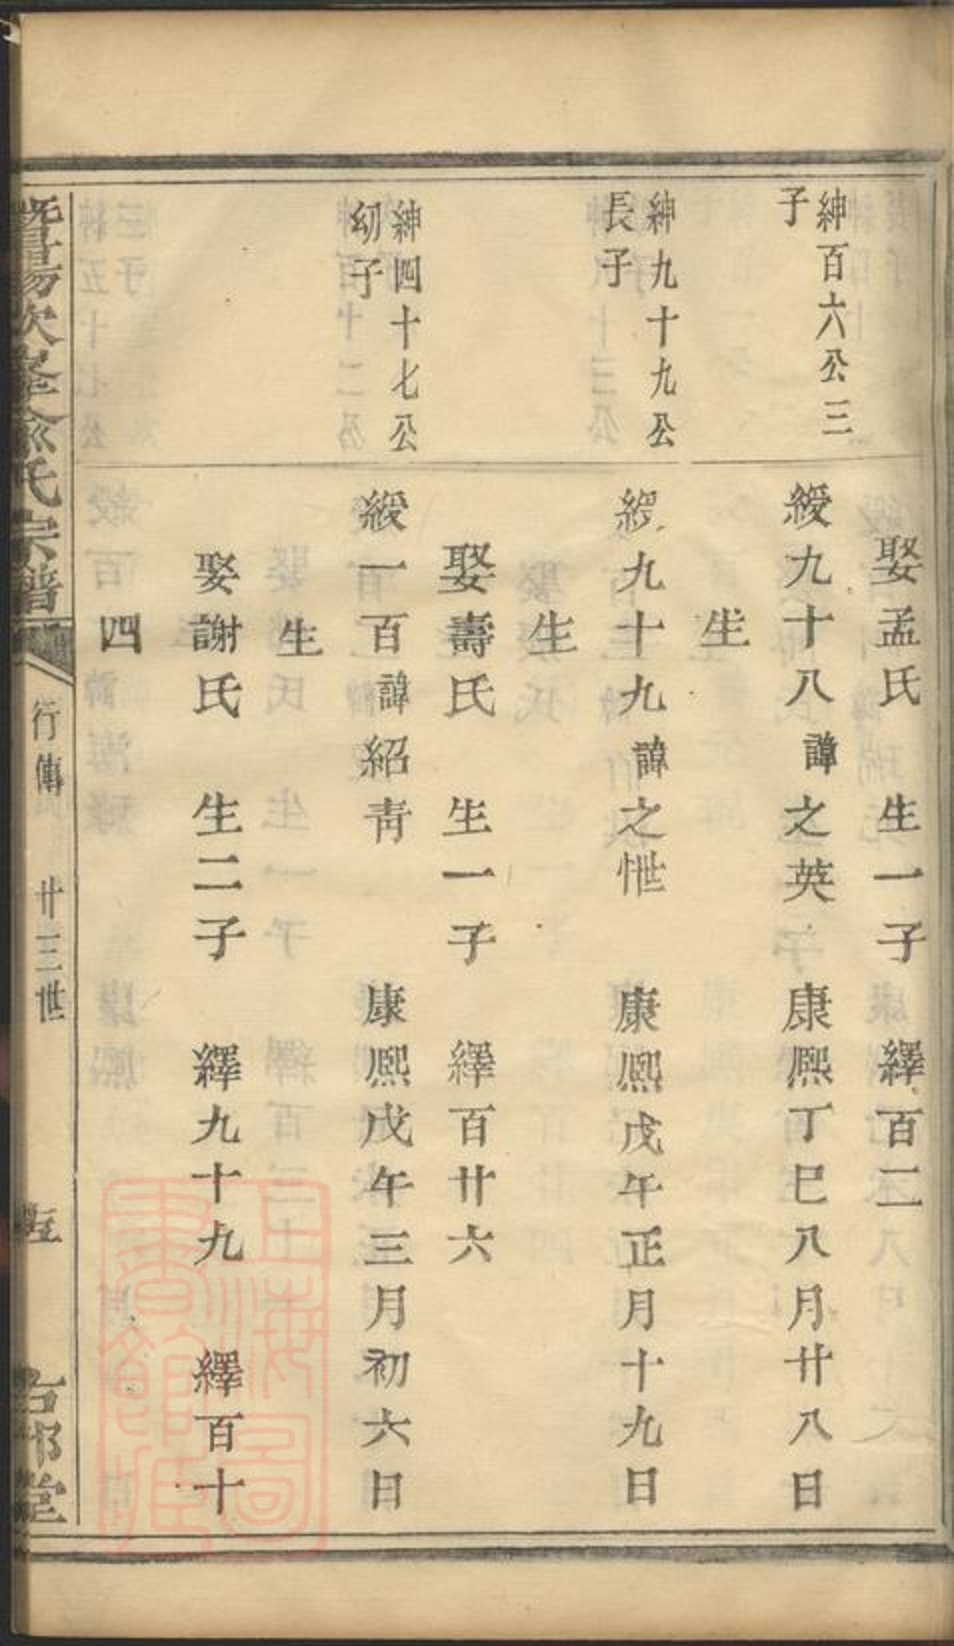 娶孟氏　生一子　繹百二
紳百六公三
子
綬九十八諱之英　康熙丁巳八月廿八日
生
紳九十九公
長子
綬九十九諱之恎　康熙戊午正月十九日
生
娶壽氏　生一子　繹百廿六
紳四十七公
幼子
綬一百諱紹青　康熙戊午三月初六日
生
娶謝氏　生二子　繹九十九　繹百十
四
暨陽次峯俞氏宗譜
行傳　廿三世
上海圖書館藏